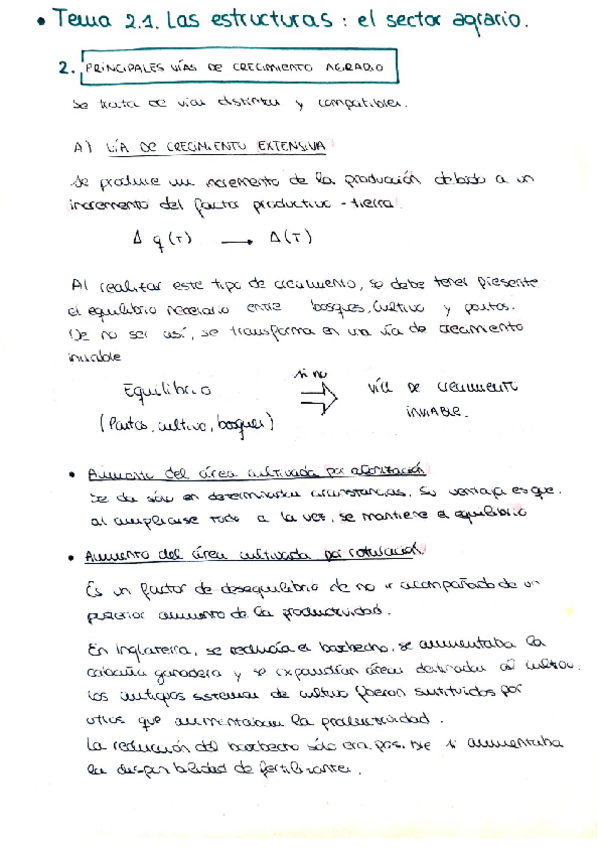 • Tema 2.1. Las estructuras: el sector agrario.
2. PRINCIPALES VÍAS DE CRECIMIENTO AGRARIO
Se trata de vías distintas y compatibles.
A) VÍA DE CRECIMIENTO EXTENSIVA
Se produce un incremento de la producción debido a un
incremento del factor productivo - tierra.
Δ q (T) → Δ (T)
Al realizar este tipo de crecimiento, se debe tener presente
el equilibrio necesario entre bosques, cultivo y pastos.
De no ser así, se transforma en una vía de crecimiento
inviable
Equilibrio si no ⇒ vía DE crecimiento
(Pastos, cultivo, bosques) INVIABLE.
• Aumento del área cultivada por colonización
Se da sólo en determinadas circunstancias. Su ventaja es que,
al ampliarse todo a la vez, se mantiene el equilibrio
• Aumento del área cultivada por roturación
Es un factor de desequilibrio de no ir acompañado de un
posterior aumento de la productividad.
En Inglaterra, se reducía el barbecho, se aumentaba la
cabaña ganadera y se expandían áreas destinadas al cultivo.
Los antiguos sistemas de cultivo fueron sustituidos por
otros que aumentaban la productividad.
La reducción del barbecho sólo era posible si aumentaba
la disponibilidad de fertilizantes.